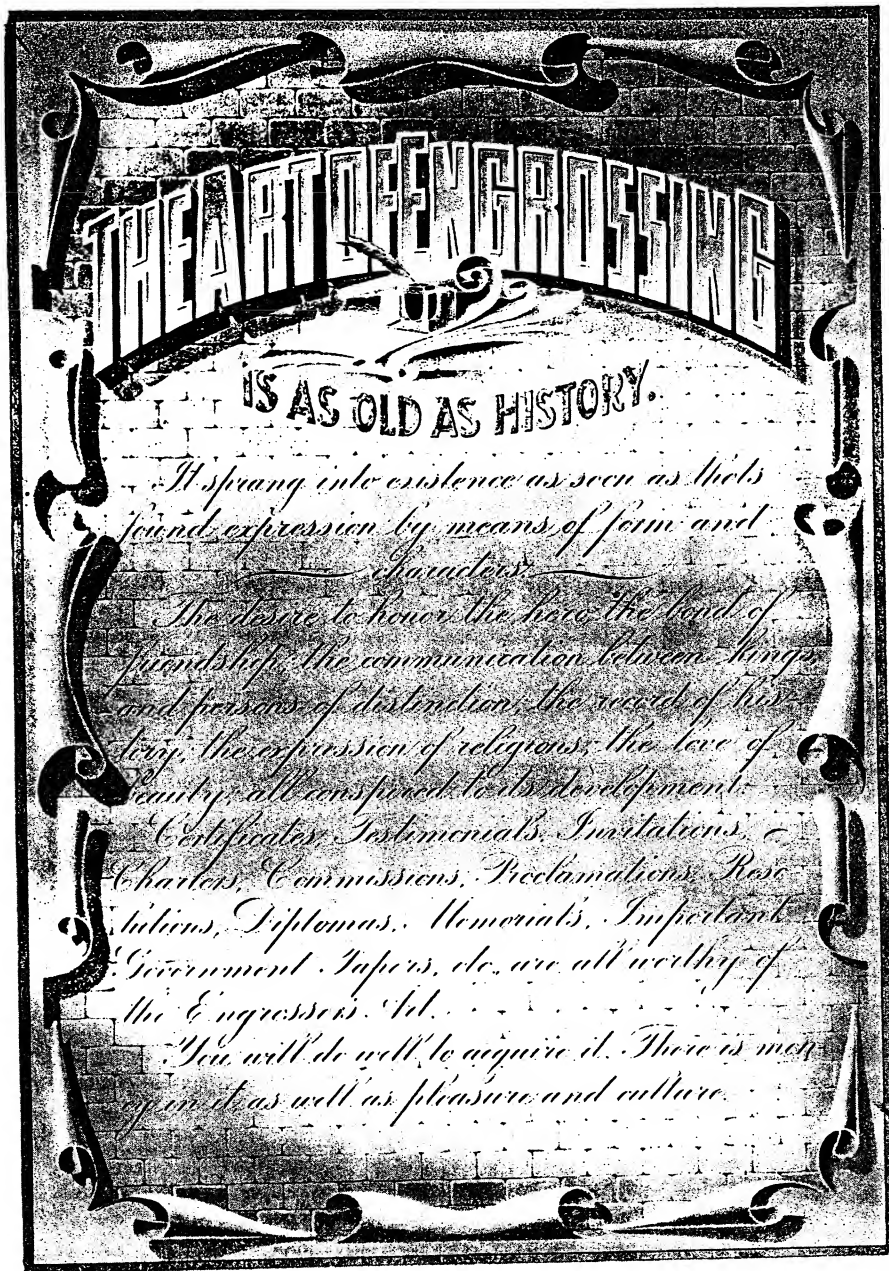 THE ART OF ENGROSSING
IS AS OLD AS HISTORY.
It sprang into existence as soon as thots
found expression by means of form and
characters.
The desire to honor the hero, the bond of
friendship, the communication between kings
and persons of distinction, the record of his-
tory, the expression of religions, the love of
beauty, all conspired to its development.
Certificates, Testimonials, Invitations,
Charters, Commissions, Proclamations, Reso
lutions, Diplomas, Memorials, Important
Government Papers, etc., are all worthy of
the Engrossers Art.
You will do well to acquire it. There is mon-
ey in it as well as pleasure and culture.